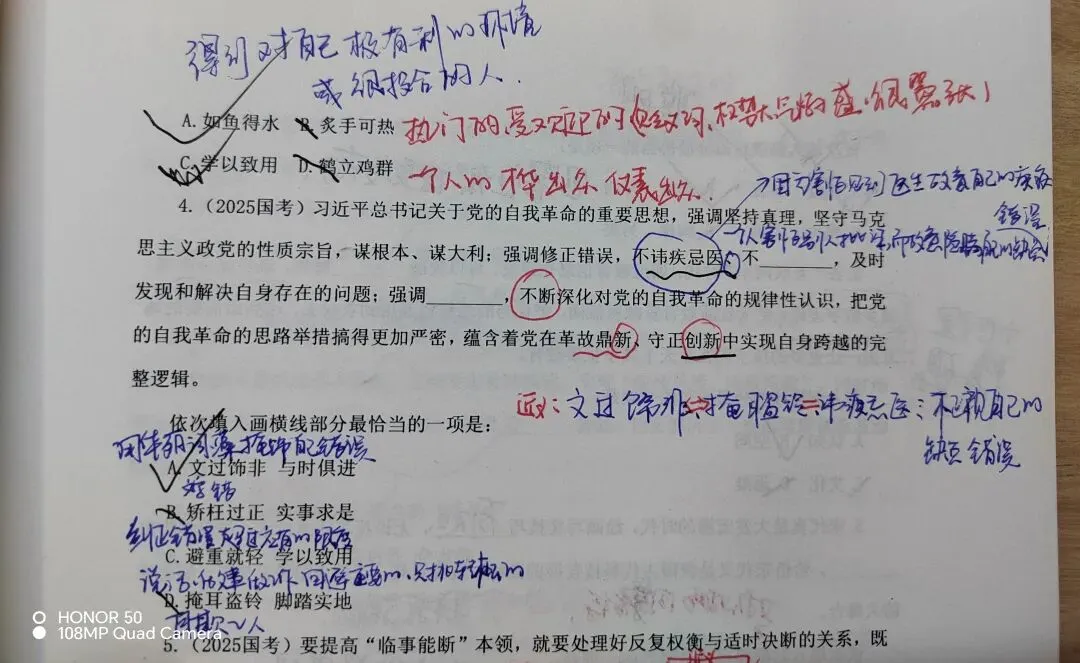 得到对自己极有利的环境
或很投合的人.
A. 如鱼得水 B. 炙手可热
热门的受欢迎的
C. 学以致用 D. 鹤立鸡群
一个人的
出众 仪表出众.
4.（2025国考）习近平总书记关于党的自我革命的重要思想，强调坚持真理，坚守马克
错误
思主义政党的性质宗旨，谋根本、谋大利；强调修正错误，不讳疾忌医、不________，及时
发现和解决自身存在的问题；强调________，不断深化对党的自我革命的规律性认识，把党
的自我革命的思路举措搞得更加严密，蕴含着党在革故鼎新、守正创新中实现自身跨越的完
整逻辑。
近义：文过饰非 掩耳盗铃 讳疾忌医：不正视自己的
缺点错误
依次填入画横线部分最恰当的一项是：
用
词藻掩饰自己错误
A. 文过饰非 与时俱进
弯 错
B. 矫枉过正 实事求是
纠正错误超过应有的限度
C. 避重就轻 学以致用
说话
做事
回避重要的、只
轻松的
D. 掩耳盗铃 脚踏实地
自欺欺人
HONOR 50
108MP Quad Camera
5.（2025国考）要提高“临事能断”本领，就要处理好反复权衡与适时决断的关系，既